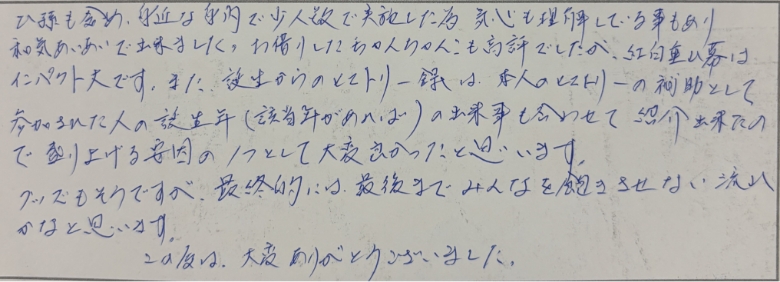 ひ孫も含め、身近な身内で少人数で実施した為 気心も理解している事もあり
和気あいあいで出来ました。お借りしたちゃんちゃんこも好評でしたが、紅白垂れ幕は
インパクト大です。また、誕生からのヒストリー録は、本人のヒストリーの補助として
参加された人の誕生年(該当年があれば)の出来事も合わせて紹介出来たの
で盛り上げる要因の1つとして大変良かったと思います。
グッズもそうですが、最終的には、最後までみんなを飽きさせない流れ
かなと思います。
この度は、大変ありがとうございました。